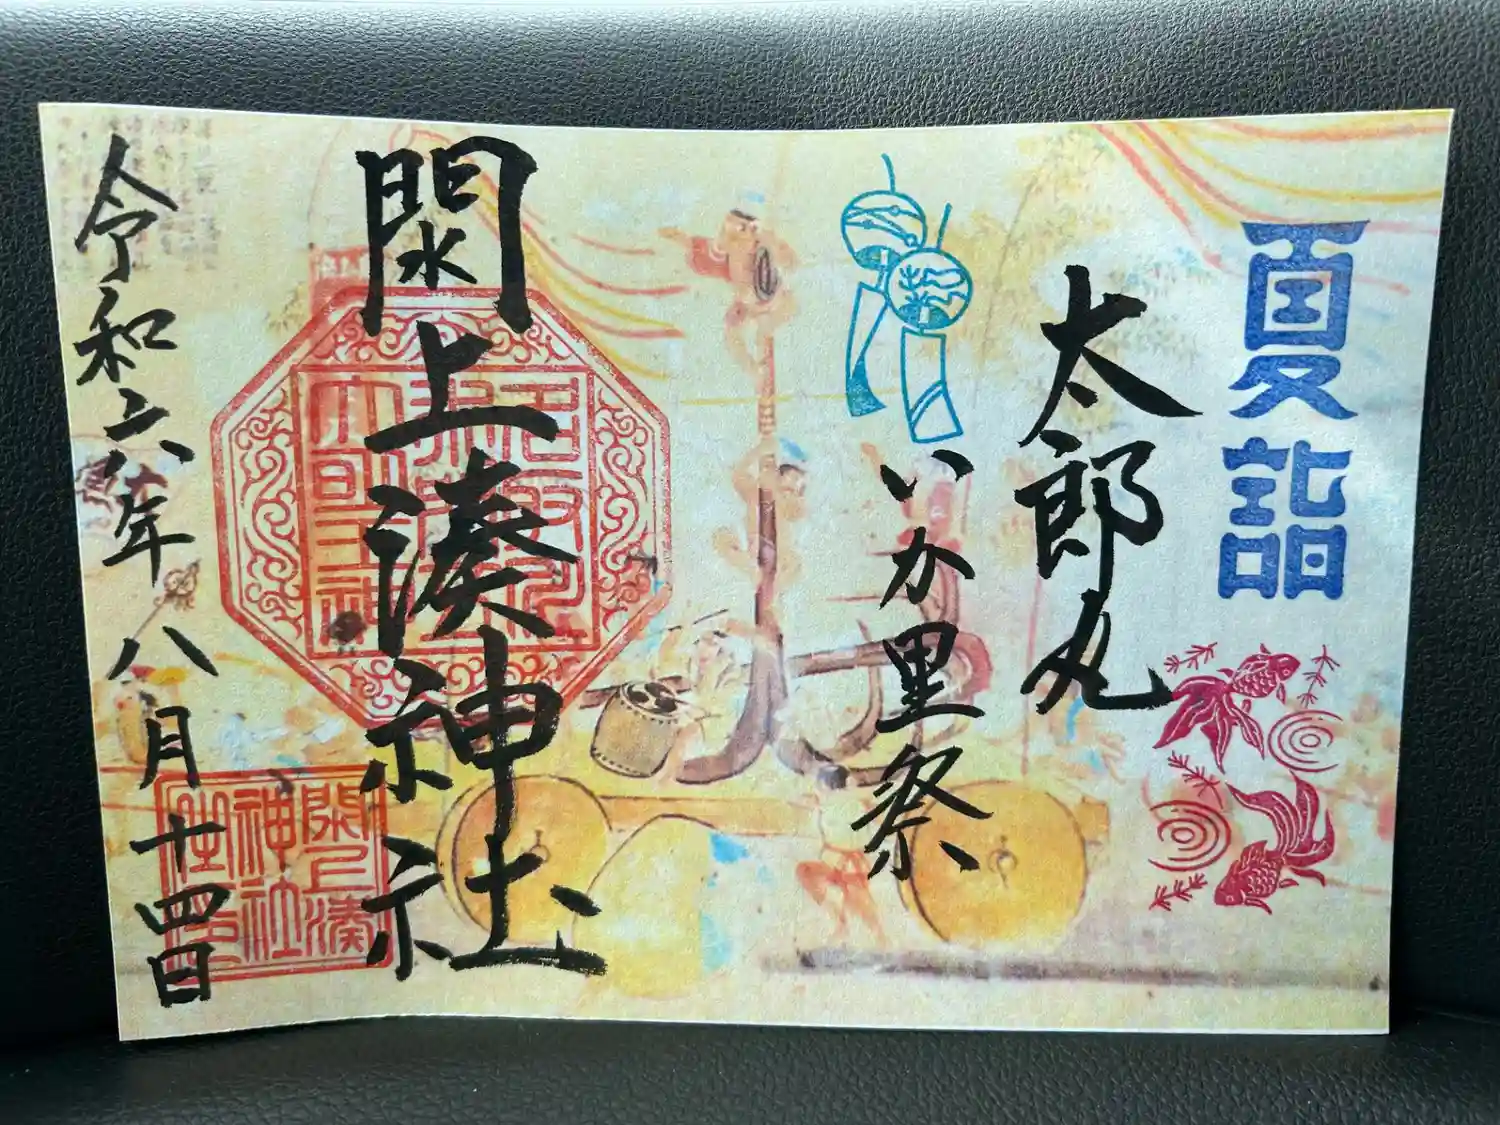 夏詣
太郎丸
いか里祭
閖上湊神社
閖上湊
神社
令和六年八月十四日